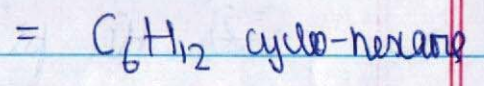 = C₆H₁₂ cyclo-hexane